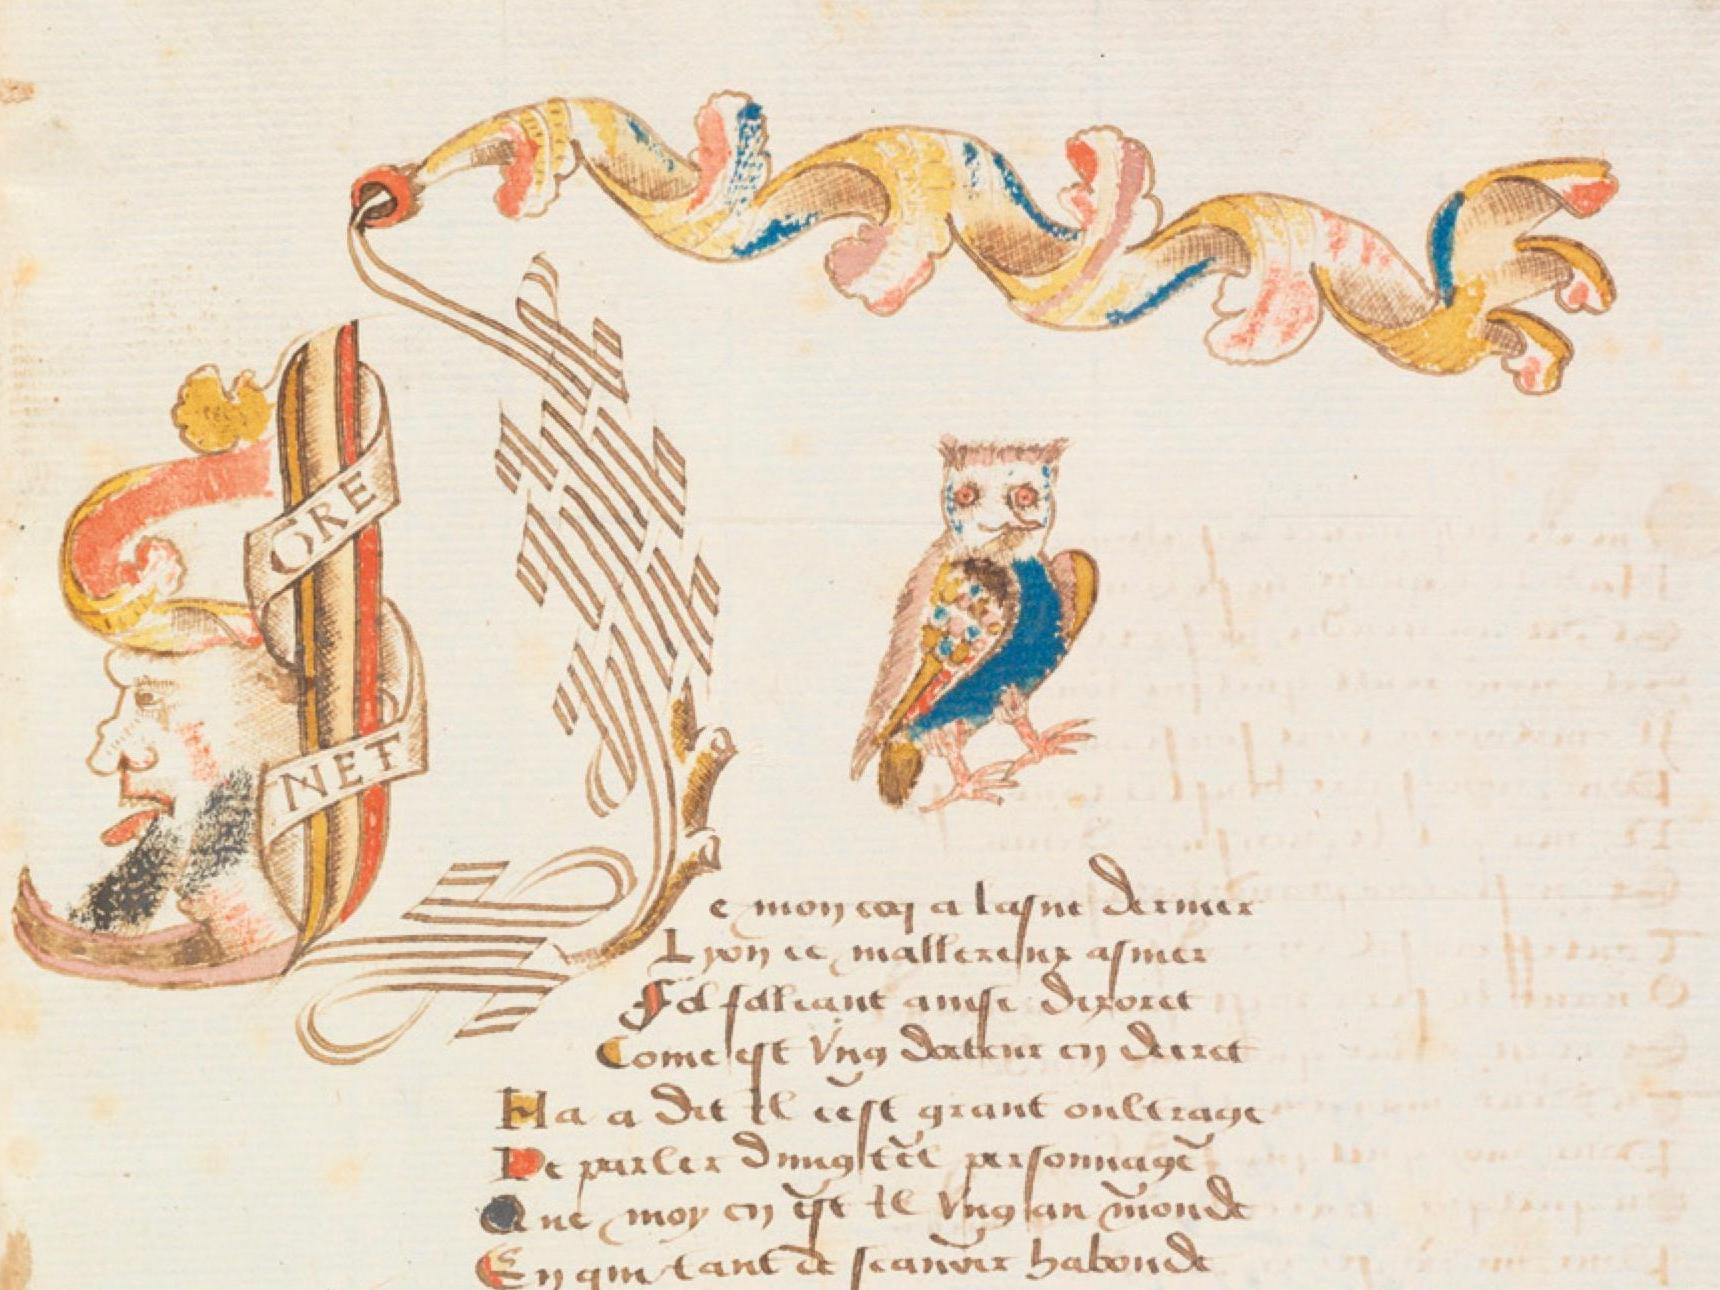 ORE
NET
De mon coq a lasne dernier
Lyon ce mallereux asnier
Fol folliant ainsi
Come est vng docteur en decret
Ha a dit il cest grant oultrage
De parler dung tel personnage
Que moy en est il vng au monde
En qui tant de scauoir habonde